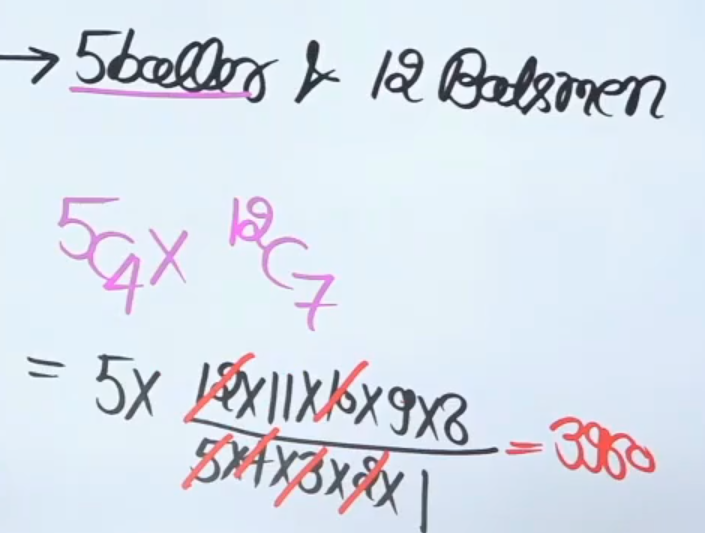 → 5 baller & 12 Batsmen
⁵C₄ × ¹²C₇
= 5 × 12×11×10×9×8 / 5×4×3×2×1 = 3960